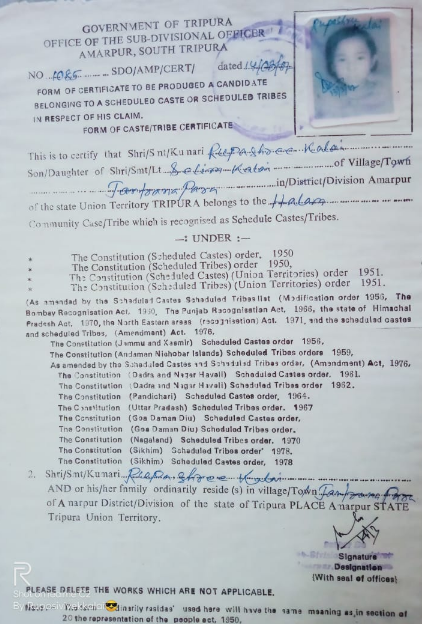 GOVERNMENT OF TRIPURA
OFFICE OF THE SUB-DIVISIONAL OFFICER
AMARPUR, SOUTH TRIPURA
NO 1085 SDO/AMP/CERT/ dated
FORM OF CERTIFICATE TO BE PRODUCED A CANDIDATE
BELONGING TO A SCHEDULED CASTE OR SCHEDULED TRIBES
IN RESPECT OF HIS CLAIM.
FORM OF CASTE/TRIBE CERTIFICATE
This is to certify that Shri/Smt/Kumari Rupashree Kalai
Son/Daughter of Shri/Smt/Lt Kalai of Village/Town
in/District/Division Amarpur
of the state Union Territory TRIPURA belongs to the Halam
Community Case/Tribe which is recognised as Schedule Castes/Tribes.
—: UNDER :—
* The Constitution (Scheduled Castes) order, 1950
* The Constitution (Scheduled Tribes) order 1950,
* The Constitution (Scheduled Castes) (Union Territories) order 1951.
* The Constitution (Scheduled Tribes) (Union Territories) order 1951.
(As amended by the Scheduled Castes Scheduled Tribes list (Modification order 1956, The
Bombay Recognisation Act. 1960, The Punjab Recognisation Act, 1966, the state of Himachal
Pradesh Act, 1970, the North Eastern areas (recognisation) Act. 1971, and the scheduled castes
and scheduled Tribes, (Amendment) Act. 1976.
The Constitution (Jammu and Kasmir) Scheduled Castes order 1956,
The Constitution (Andaman Niahobar Islands) Scheduled Tribes orders 1959,
As amended by the Scheduled Castes and Scheduled Tribes order, (Amendment) Act, 1976,
The Constitution (Dadra and Nagar Havali) Scheduled Castes order. 1961.
The Constitution (Dadra and Nagar Havali) Scheduled Tribes order 1962.
The Constitution (Pandichari) Scheduled Castes order, 1964.
The Constitution (Uttar Pradesh) Scheduled Tribes order. 1967
The Constitution (Goa Daman Diu) Scheduled Castes order,
The Constitution (Goa Daman Diu) Scheduled Tribes order,
The Constitution (Nagaland) Scheduled Tribes order. 1970
The Constitution (Sikhim) Scheduled Tribes order' 1978.
The Constitution (Sikhim) Scheduled Castes order, 1978
2. Shri/Smt/Kumari Rupashree Kalai
AND or his/her family ordinarily reside (s) in village/Town
of Amarpur District/Division of the state of Tripura PLACE Amarpur STATE
Tripura Union Territory.
Signature
Designation
(With seal of offices)
PLEASE DELETE THE WORKS WHICH ARE NOT APPLICABLE.
used here will have the same meaning as in section of
20 the representation of the people act, 1950.
R
Shot on
By